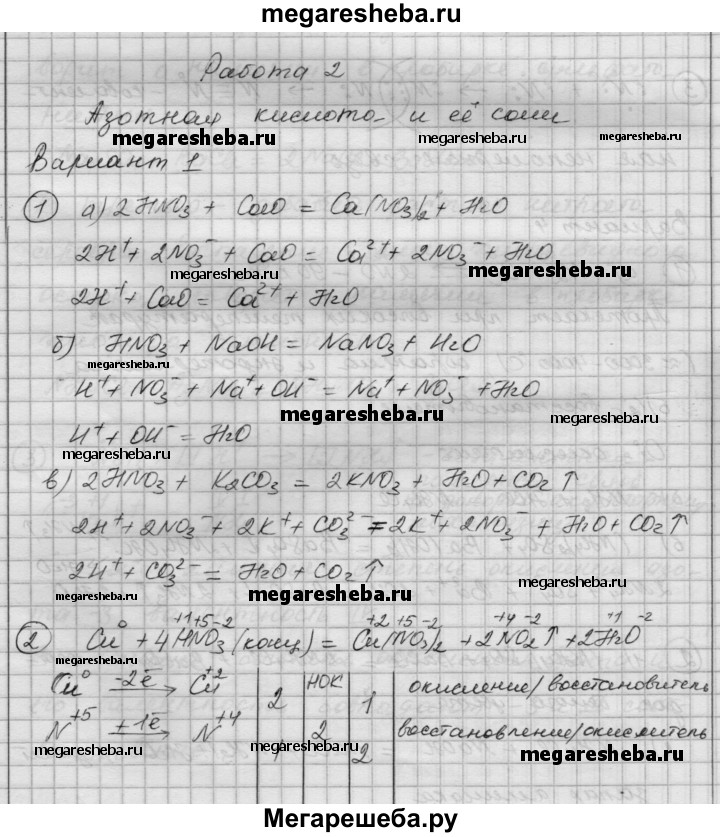 megaresheba.ru
Работа 2
Азотная кислота и её соли
megaresheba.ru megaresheba.ru megaresheba.ru
Вариант 1
① а) 2HNO₃ + CaO = Ca(NO₃)₂ + H₂O
2H⁺ + 2NO₃⁻ + CaO = Ca²⁺ + 2NO₃⁻ + H₂O
megaresheba.ru megaresheba.ru
2H⁺ + CaO = Ca²⁺ + H₂O
б) HNO₃ + NaOH = NaNO₃ + H₂O
megaresheba.ru
H⁺ + NO₃⁻ + Na⁺ + OH⁻ = Na⁺ + NO₃⁻ + H₂O
megaresheba.ru
H⁺ + OH⁻ = H₂O
megaresheba.ru
в) 2HNO₃ + K₂CO₃ = 2KNO₃ + H₂O + CO₂↑
megaresheba.ru
2H⁺ + 2NO₃⁻ + 2K⁺ + CO₃²⁻ = 2K⁺ + 2NO₃⁻ + H₂O + CO₂↑
2H⁺ + CO₃²⁻ = H₂O + CO₂↑
megaresheba.ru megaresheba.ru
0 +1+5-2 +2 +5 -2 +4 -2 +1 -2
② Cu + 4HNO₃(конц) = Cu(NO₃)₂ + 2NO₂↑ + 2H₂O
megaresheba.ru
Cu⁰ -2ē→ Cu⁺² | 2 | НОК | 1 | окисление/восстановитель
N⁺⁵ +1ē→ N⁺⁴ | 1 | 2 | 2 | восстановление/окислитель
megaresheba.ru megaresheba.ru megaresheba.ru
Мегарешеба.ру